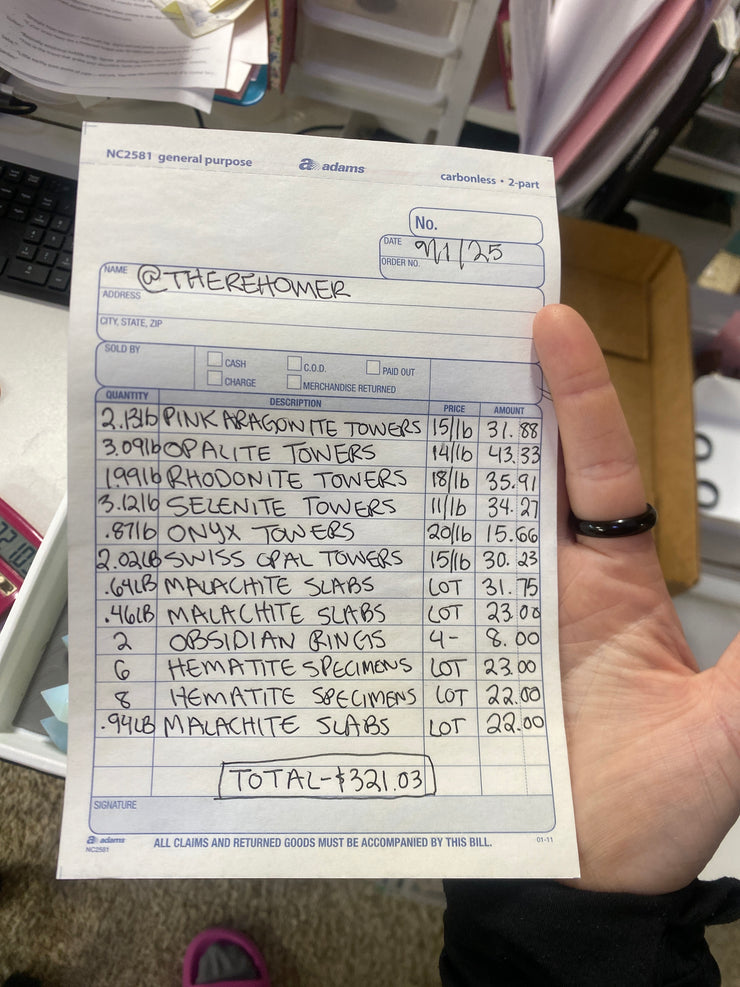 NC2581 general purpose
a adams
carbonless • 2-part
No.
DATE 9/1/25
ORDER NO.
NAME @THEREHOMER
ADDRESS
CITY, STATE, ZIP
SOLD BY
CASH C.O.D. PAID OUT
CHARGE MERCHANDISE RETURNED
QUANTITY DESCRIPTION PRICE AMOUNT
2.13lb PINK ARAGONITE TOWERS 15/lb 31.88
3.09lb OPALITE TOWERS 14/lb 43.33
1.99lb RHODONITE TOWERS 18/lb 35.91
3.12lb SELENITE TOWERS 11/lb 34.27
.87lb ONYX TOWERS 20/lb 15.66
2.02LB SWISS OPAL TOWERS 15/lb 30.23
.64LB MALACHITE SLABS LOT 31.75
.46LB MALACHITE SLABS LOT 23.00
2 OBSIDIAN RINGS 4- 8.00
6 HEMATITE SPECIMENS LOT 23.00
8 HEMATITE SPECIMENS LOT 22.00
.94LB MALACHITE SLABS LOT 22.00
TOTAL-$321.03
SIGNATURE
a adams
NC2581
ALL CLAIMS AND RETURNED GOODS MUST BE ACCOMPANIED BY THIS BILL.
01-11